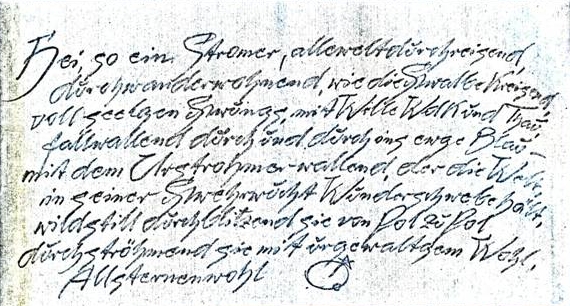 Hei, so ein Stromer, alleweltdurchreisend,
durchwanderwohnend, wie die Swalbe kreisend,
voll seelgen Swungs, mit Welle Wolk und Thau,
fallwallend durch und durch ins ewge Blau
mit dem Urstrohmer wallend, der die Welt,
in seiner Swehrwucht Wunderschwebe hält,
wildstill durchblitzend sie von Pol zu Pol
durchströhmend sie mit urgewaltgem Wohl.
Allsternenwohl